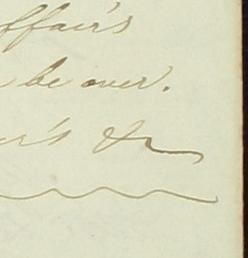 ffairs
be over.
er's &c